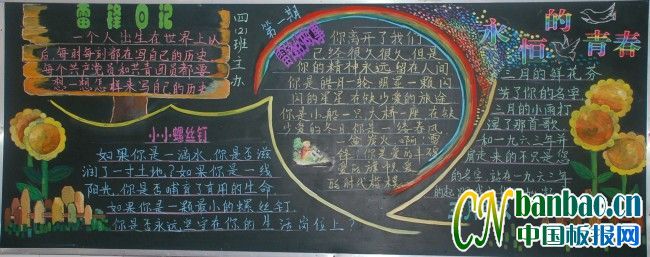 雷锋日记
一个人出生在世界上以
后,每时每刻都在写自己的历史
每个共产党员和共青团员都要
想一想怎样来写自己的历史
四(2)班主办
第一期
小小螺丝钉
如果你是一滴水,你是否滋
润了一寸土地?如果你是一线
阳光,你是否哺育了有用的生命
如果你是一颗最小的螺丝钉,
你是否永远坚守在你的生活岗位上?
你离开了我们
已然很久很久,但是
你的精神永远留在人间
你是皓月一轮,明星一颗闪
闪的星星在缺少爱的旅途
你是小船一只,大桥一座,在缺
少爱的冬日,你是一缕春风
时代楷模
永恒的青春
三月的鲜花芬
芳了你的名字
三月的小雨打
湿了那首歌
和一九六三年并
肩走来的不只是您
的名字,站在一九六三年
CN banbao.cn
中国板报网